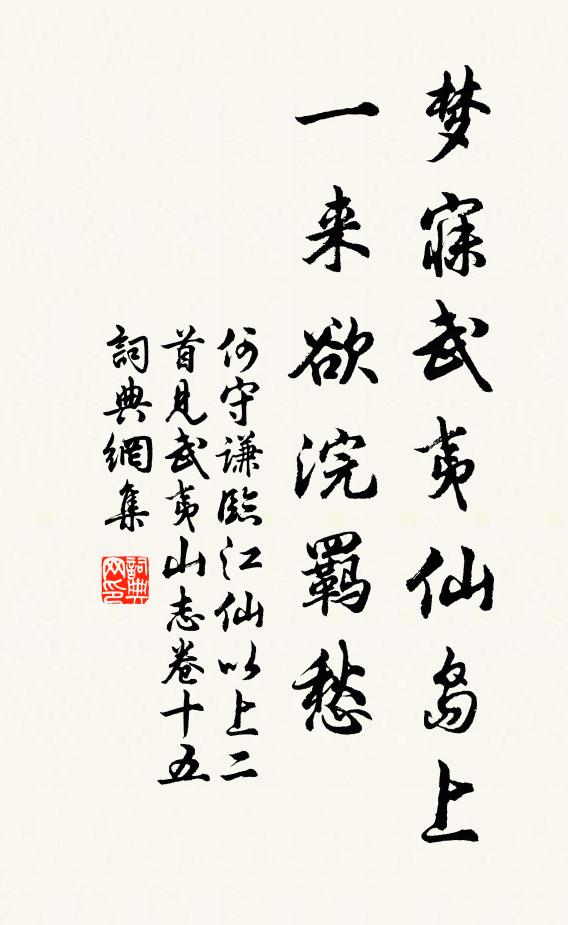 梦寐武夷仙岛上
一来欲浣羁愁
何守谦臨江仙以上二
首見武夷山志卷十五
詞典網集
詞典网印